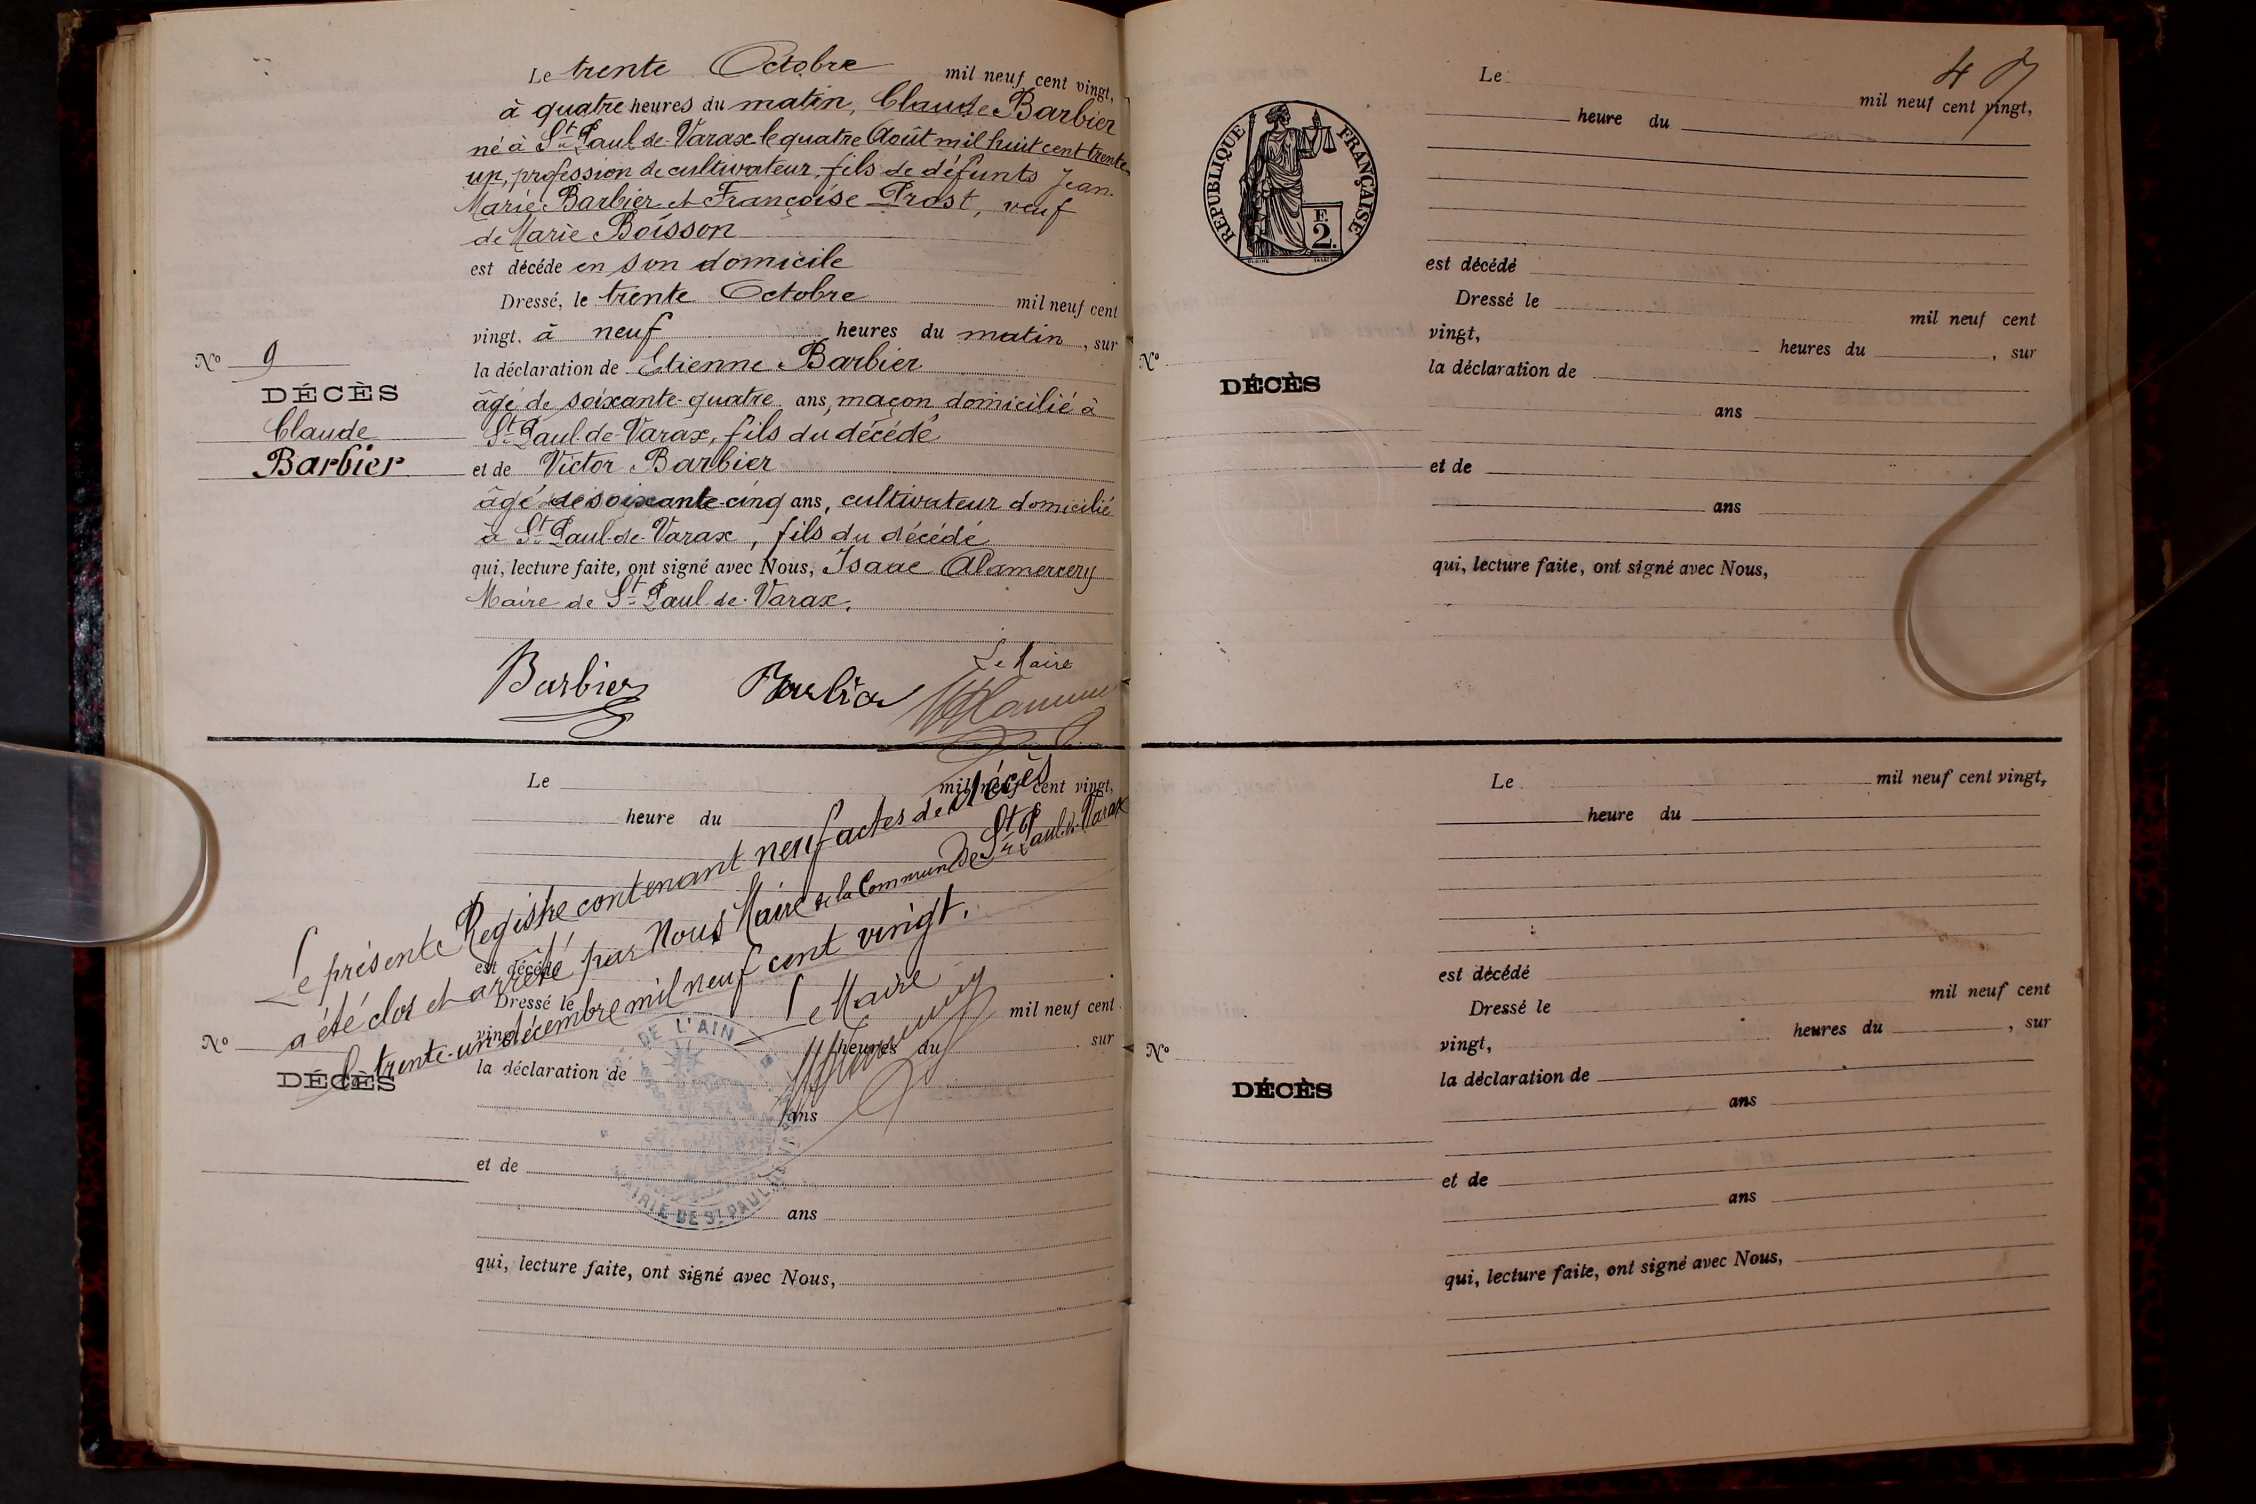 Le trente Octobre mil neuf cent vingt,
à quatre heures du matin, Claude Barbier
né à St Paul-de-Varax le quatre Août mil huit cent trente-
un, profession de cultivateur, fils de défunts Jean-
Marie Barbier et Françoise Prost, veuf
de Marie Boisson
est décédé en son domicile
Dressé, le trente Octobre mil neuf cent
vingt, à neuf heures du matin, sur
la déclaration de Etienne Barbier
âgé de soixante-quatre ans, maçon domicilié à
St Paul-de-Varax, fils du décédé
et de Victor Barbier
âgé de soixante-cinq ans, cultivateur domicilié
à St Paul-de-Varax, fils du décédé
qui, lecture faite, ont signé avec Nous, Isaac Alamercery
Maire de St Paul-de-Varax.
Le Maire
Barbier Barbier
No 9
DÉCÈS
Claude
Barbier
Le mil neuf cent vingt,
heure du
Le présente Registre contenant neuf actes de décès
a été clos et arrêté par Nous Maire de la Commune de St Paul-de-Varax
le trente-un décembre mil neuf cent vingt.
Le Maire
est décédé
Dressé le mil neuf cent
vingt, heures du , sur
la déclaration de
ans
et de
ans
qui, lecture faite, ont signé avec Nous,
No
DÉCÈS
DE L'AIN
MAIRIE DE ST PAUL
4
Le mil neuf cent vingt,
heure du
RÉPUBLIQUE FRANÇAISE
F.
2.
est décédé
Dressé le mil neuf cent
vingt, heures du , sur
la déclaration de
ans
et de
ans
qui, lecture faite, ont signé avec Nous,
No
DÉCÈS
Le mil neuf cent vingt,
heure du
est décédé
Dressé le mil neuf cent
vingt, heures du , sur
la déclaration de
ans
et de
ans
qui, lecture faite, ont signé avec Nous,
No
DÉCÈS